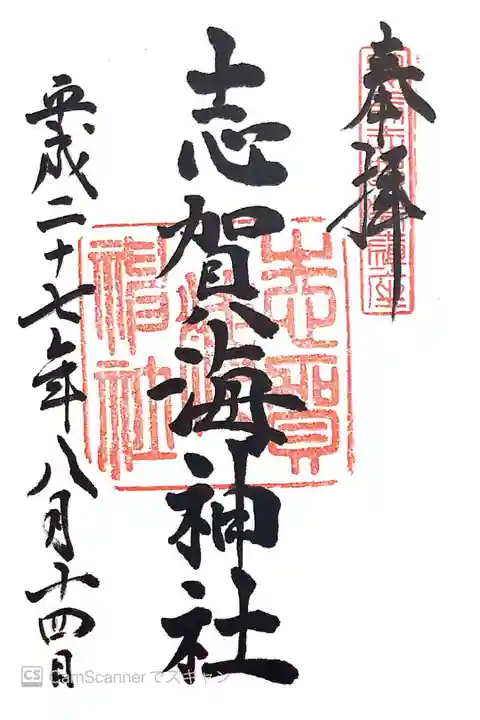 奉拝
志賀海神社
平成二十七年八月十四日
志賀海神社
CS CamScannerでスキャン